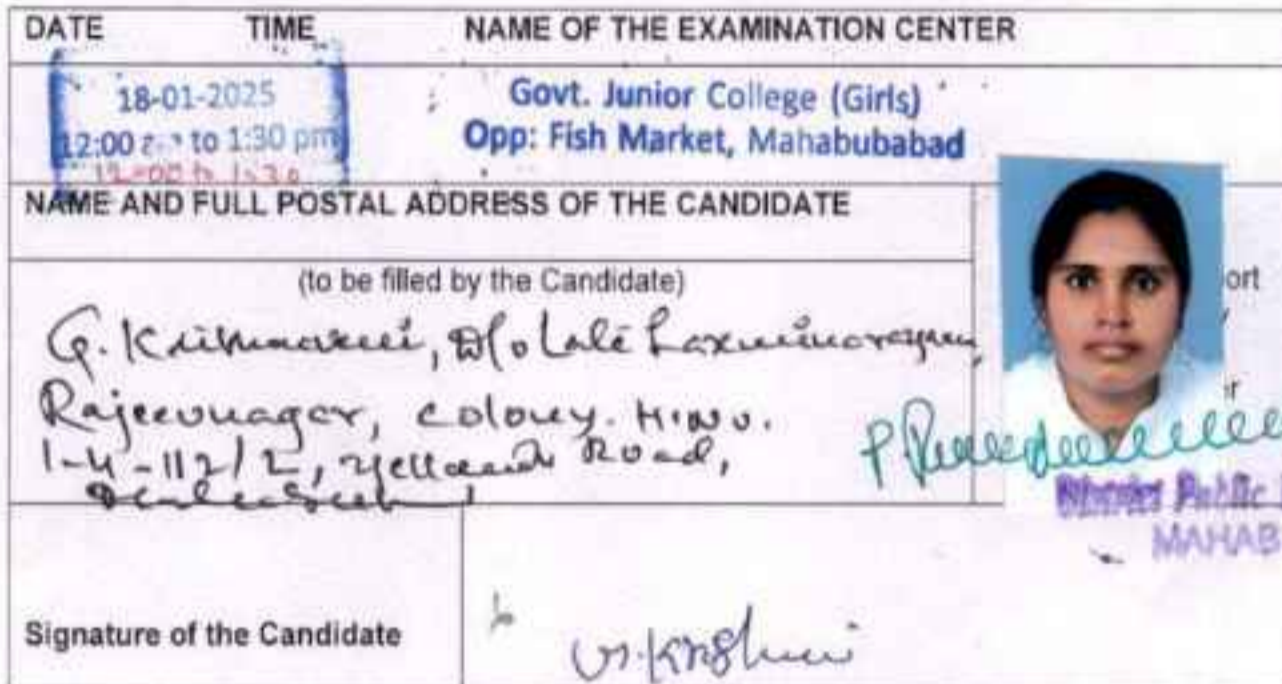 DATE TIME NAME OF THE EXAMINATION CENTER
18-01-2025 Govt. Junior College (Girls)
12:00 to 1:30 pm Opp: Fish Market, Mahabubabad
12-00 to 1.30
NAME AND FULL POSTAL ADDRESS OF THE CANDIDATE
(to be filled by the Candidate)
ort
G. Krishnaveni, D/o Late Laxminarayana,
Rajeevnagar, colony. H.No.
1-4-112/2, Yellandu Road,
Public
MAHAB
Signature of the Candidate